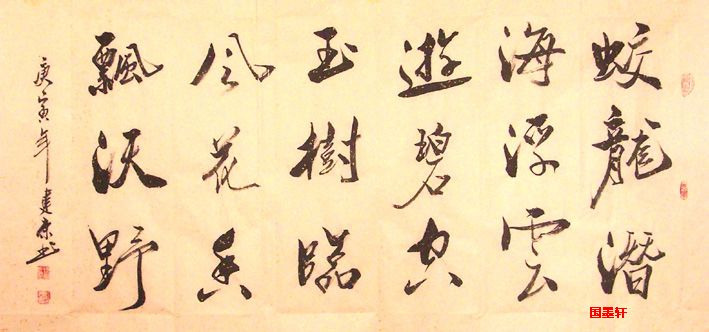 蛟龍潛
海浮雲
遊碧空
玉樹臨
風花香
飄沃野
庚寅年建东书
国墨轩